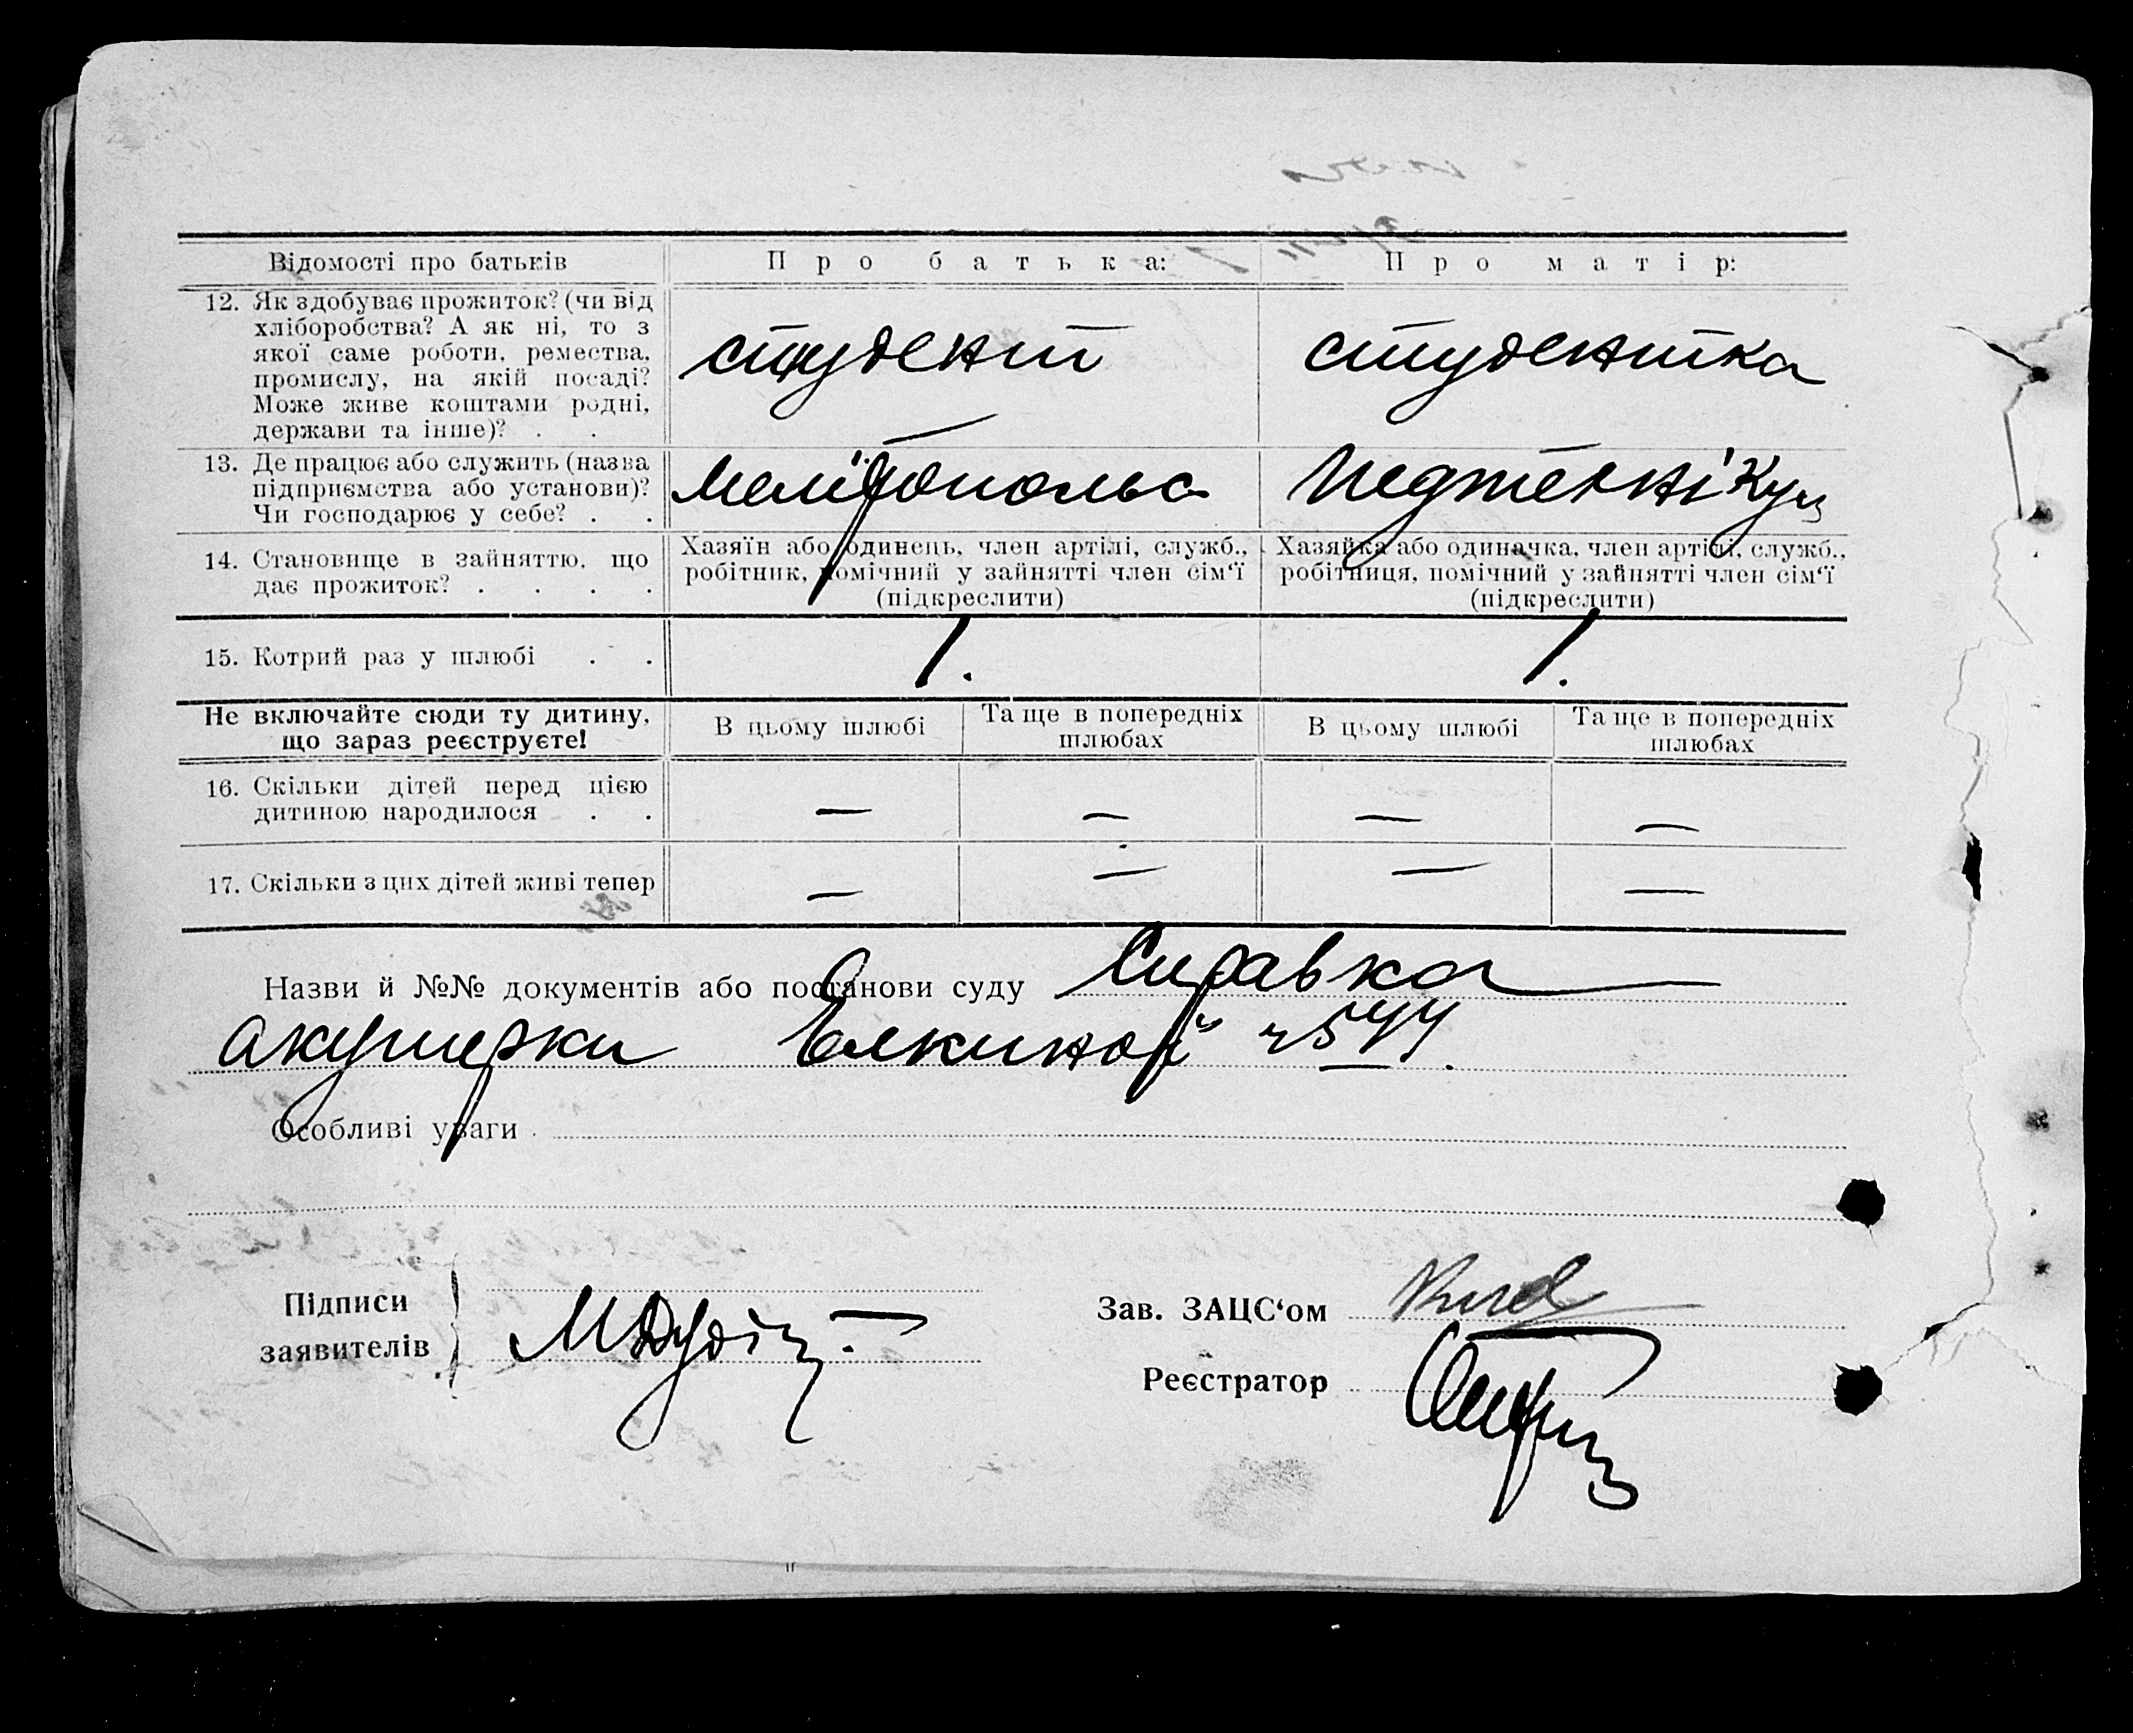 Відомості про батьків
Про батька:
Про матір:
12. Як здобуває прожиток? (чи від
хліборобства? А як ні, то з
якої саме роботи, ремества,
промислу, на якій посаді?
Може живе коштами родні,
держави та інше)? . .
студент
студентка
13. Де працює або служить (назва
підприємства або установи)?
Чи господарює у себе? . .
Педтехнікум
14. Становище в зайняттю, що
дає прожиток? . . . .
Хазяїн або одинець, член артілі, служб.,
робітник, помічний у зайнятті член сім'ї
(підкреслити)
Хазяйка або одиначка, член артілі, служб.,
робітниця, помічний у зайнятті член сім'ї
(підкреслити)
15. Котрий раз у шлюбі . .
1.
1.
Не включайте сюди ту дитину,
що зараз реєструєте!
В цьому шлюбі
Та ще в попередніх
шлюбах
В цьому шлюбі
Та ще в попередніх
шлюбах
16. Скільки дітей перед цією
дитиною народилося . .
— — — —
17. Скільки з цих дітей живі тепер
— — — —
Назви й №№ документів або постанови суду Справка
акушерки Елкиной
Особливі уваги
Підписи
заявителів
Зав. ЗАЦС'ом
Реєстратор